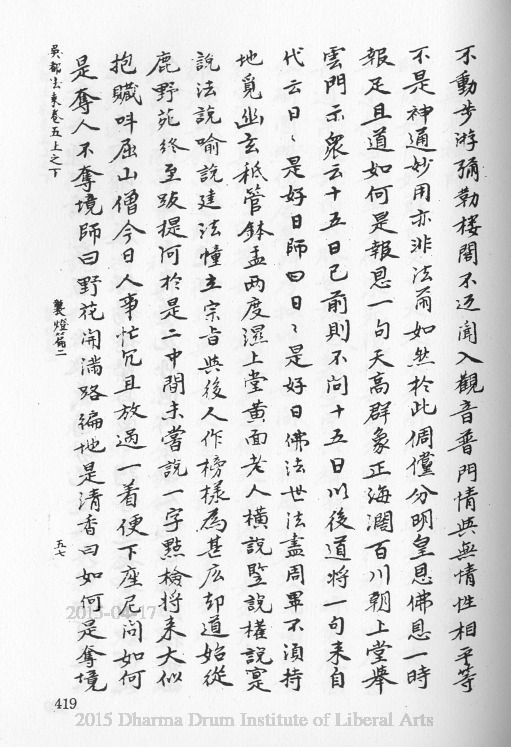 不動步游彌勒樓閣不返聞入觀音普門情與無情性相平等
不是神通妙用亦非法爾如然於此倜儻分明皇恩佛恩一時
報足且道如何是報恩一句天高群象正海濶百川朝上堂舉
雲門示眾云十五日已前則不問十五日以後道將一句來自
代云日〻是好日師曰日〻是好日佛法世法盡周畢不須持
地覓幽玄秪管鉢盂两度濕上堂黄面老人橫說竪說權說實
說法說喻說建法幢立宗旨與後人作榜樣為甚庅却道始從
鹿野苑終至跋提河於是二中間未嘗說一字點檢將來大似
抱贓呌屈山僧今日人事忙冗且放過一着便下座尼問如何
是奪人不奪境師曰野花開滿路徧地是清香曰如何是奪境
吳都法乘卷五上之下
襲燈篇二
五七
419
2015-04-17
2015 Dharma Drum Institute of Liberal Arts